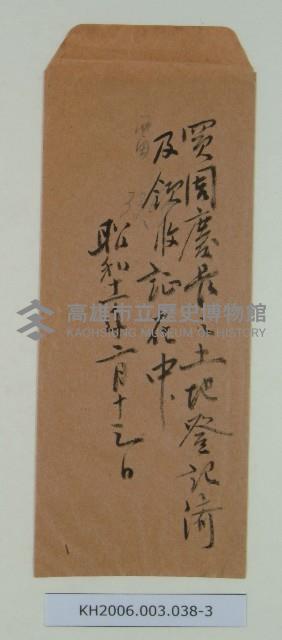 買周慶長土地登記濟
及領收証在中
昭和十二年二月十三日
高雄市立歷史博物館
KAOHSIUNG MUSEUM OF HISTORY
KH2006.003.038-3